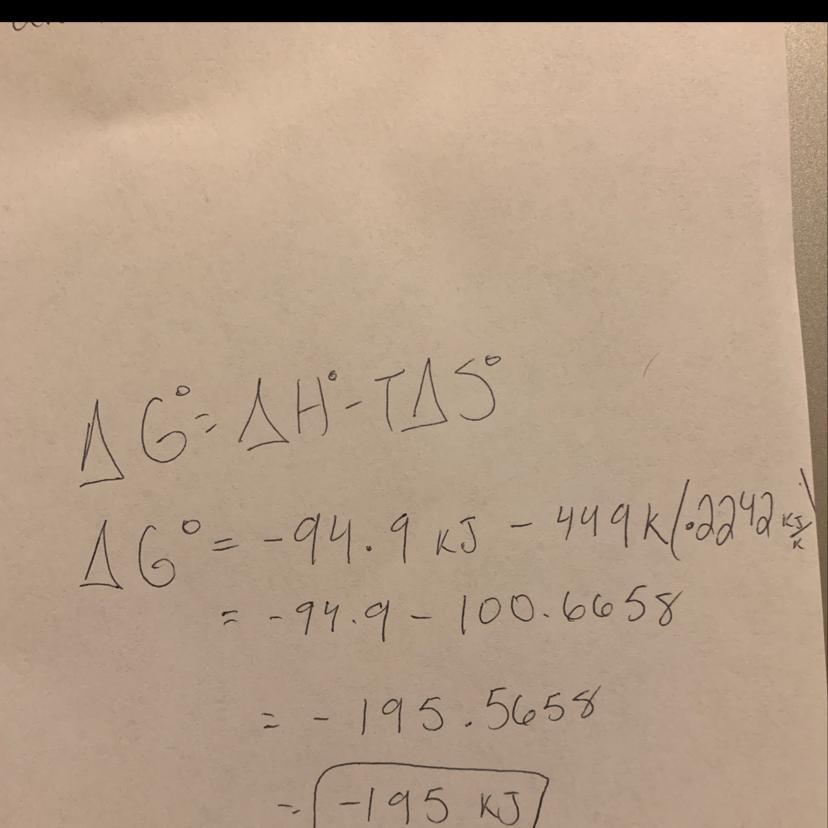 ΔG° = ΔH° - TΔS°
ΔG° = -94.9 KJ - 449 K (.2242 KJ/K)
= -94.9 - 100.6658
= -195.5658
= -195 KJ